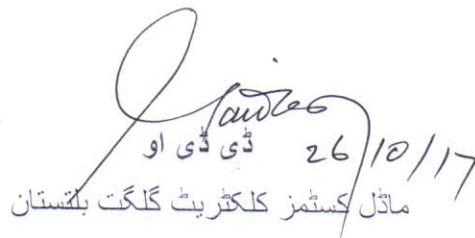 ڈی ڈی او 26/10/17
ماڈل کسٹمز کلکٹریٹ گلگت بلتستان